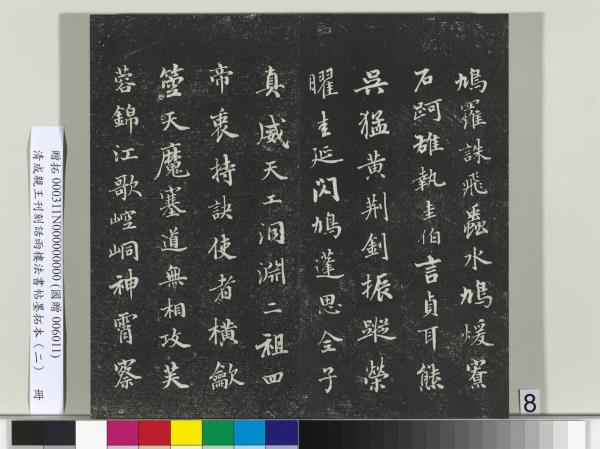 鳩羅誅飛蠱水鳩煖寮
石跒雄執圭伯言貞耳熊
吳猛黃荆釗振蹤榮
曜圭延閃鳩蓬思全子
真威天工洞淵二祖四
帝衷持訣使者橫歙
天魔塞道無相攻芙
蓉錦江歌崆峒神霄察
贈拓 000311N000000000 (國贈 006011)
清成親王刊刻話雨樓法書帖墨拓本（二） 冊
8